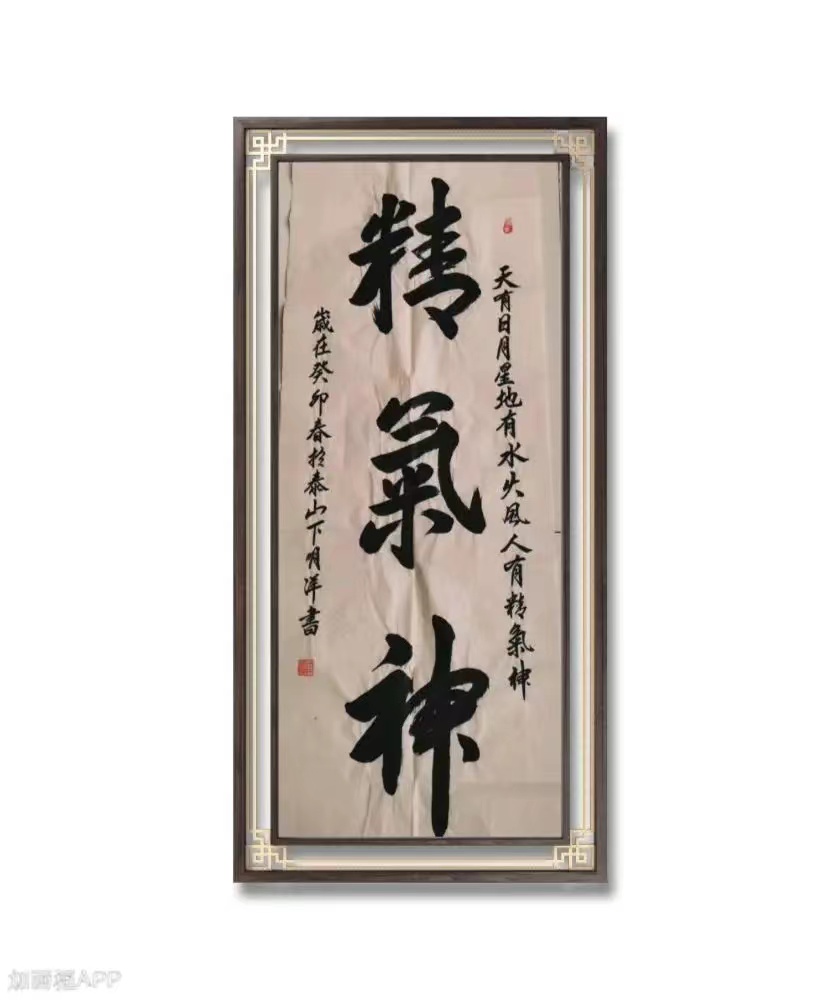 天有日月星地有水火风人有精氣神
精氣神
歲在癸卯春於泰山下明洋書
加画框APP